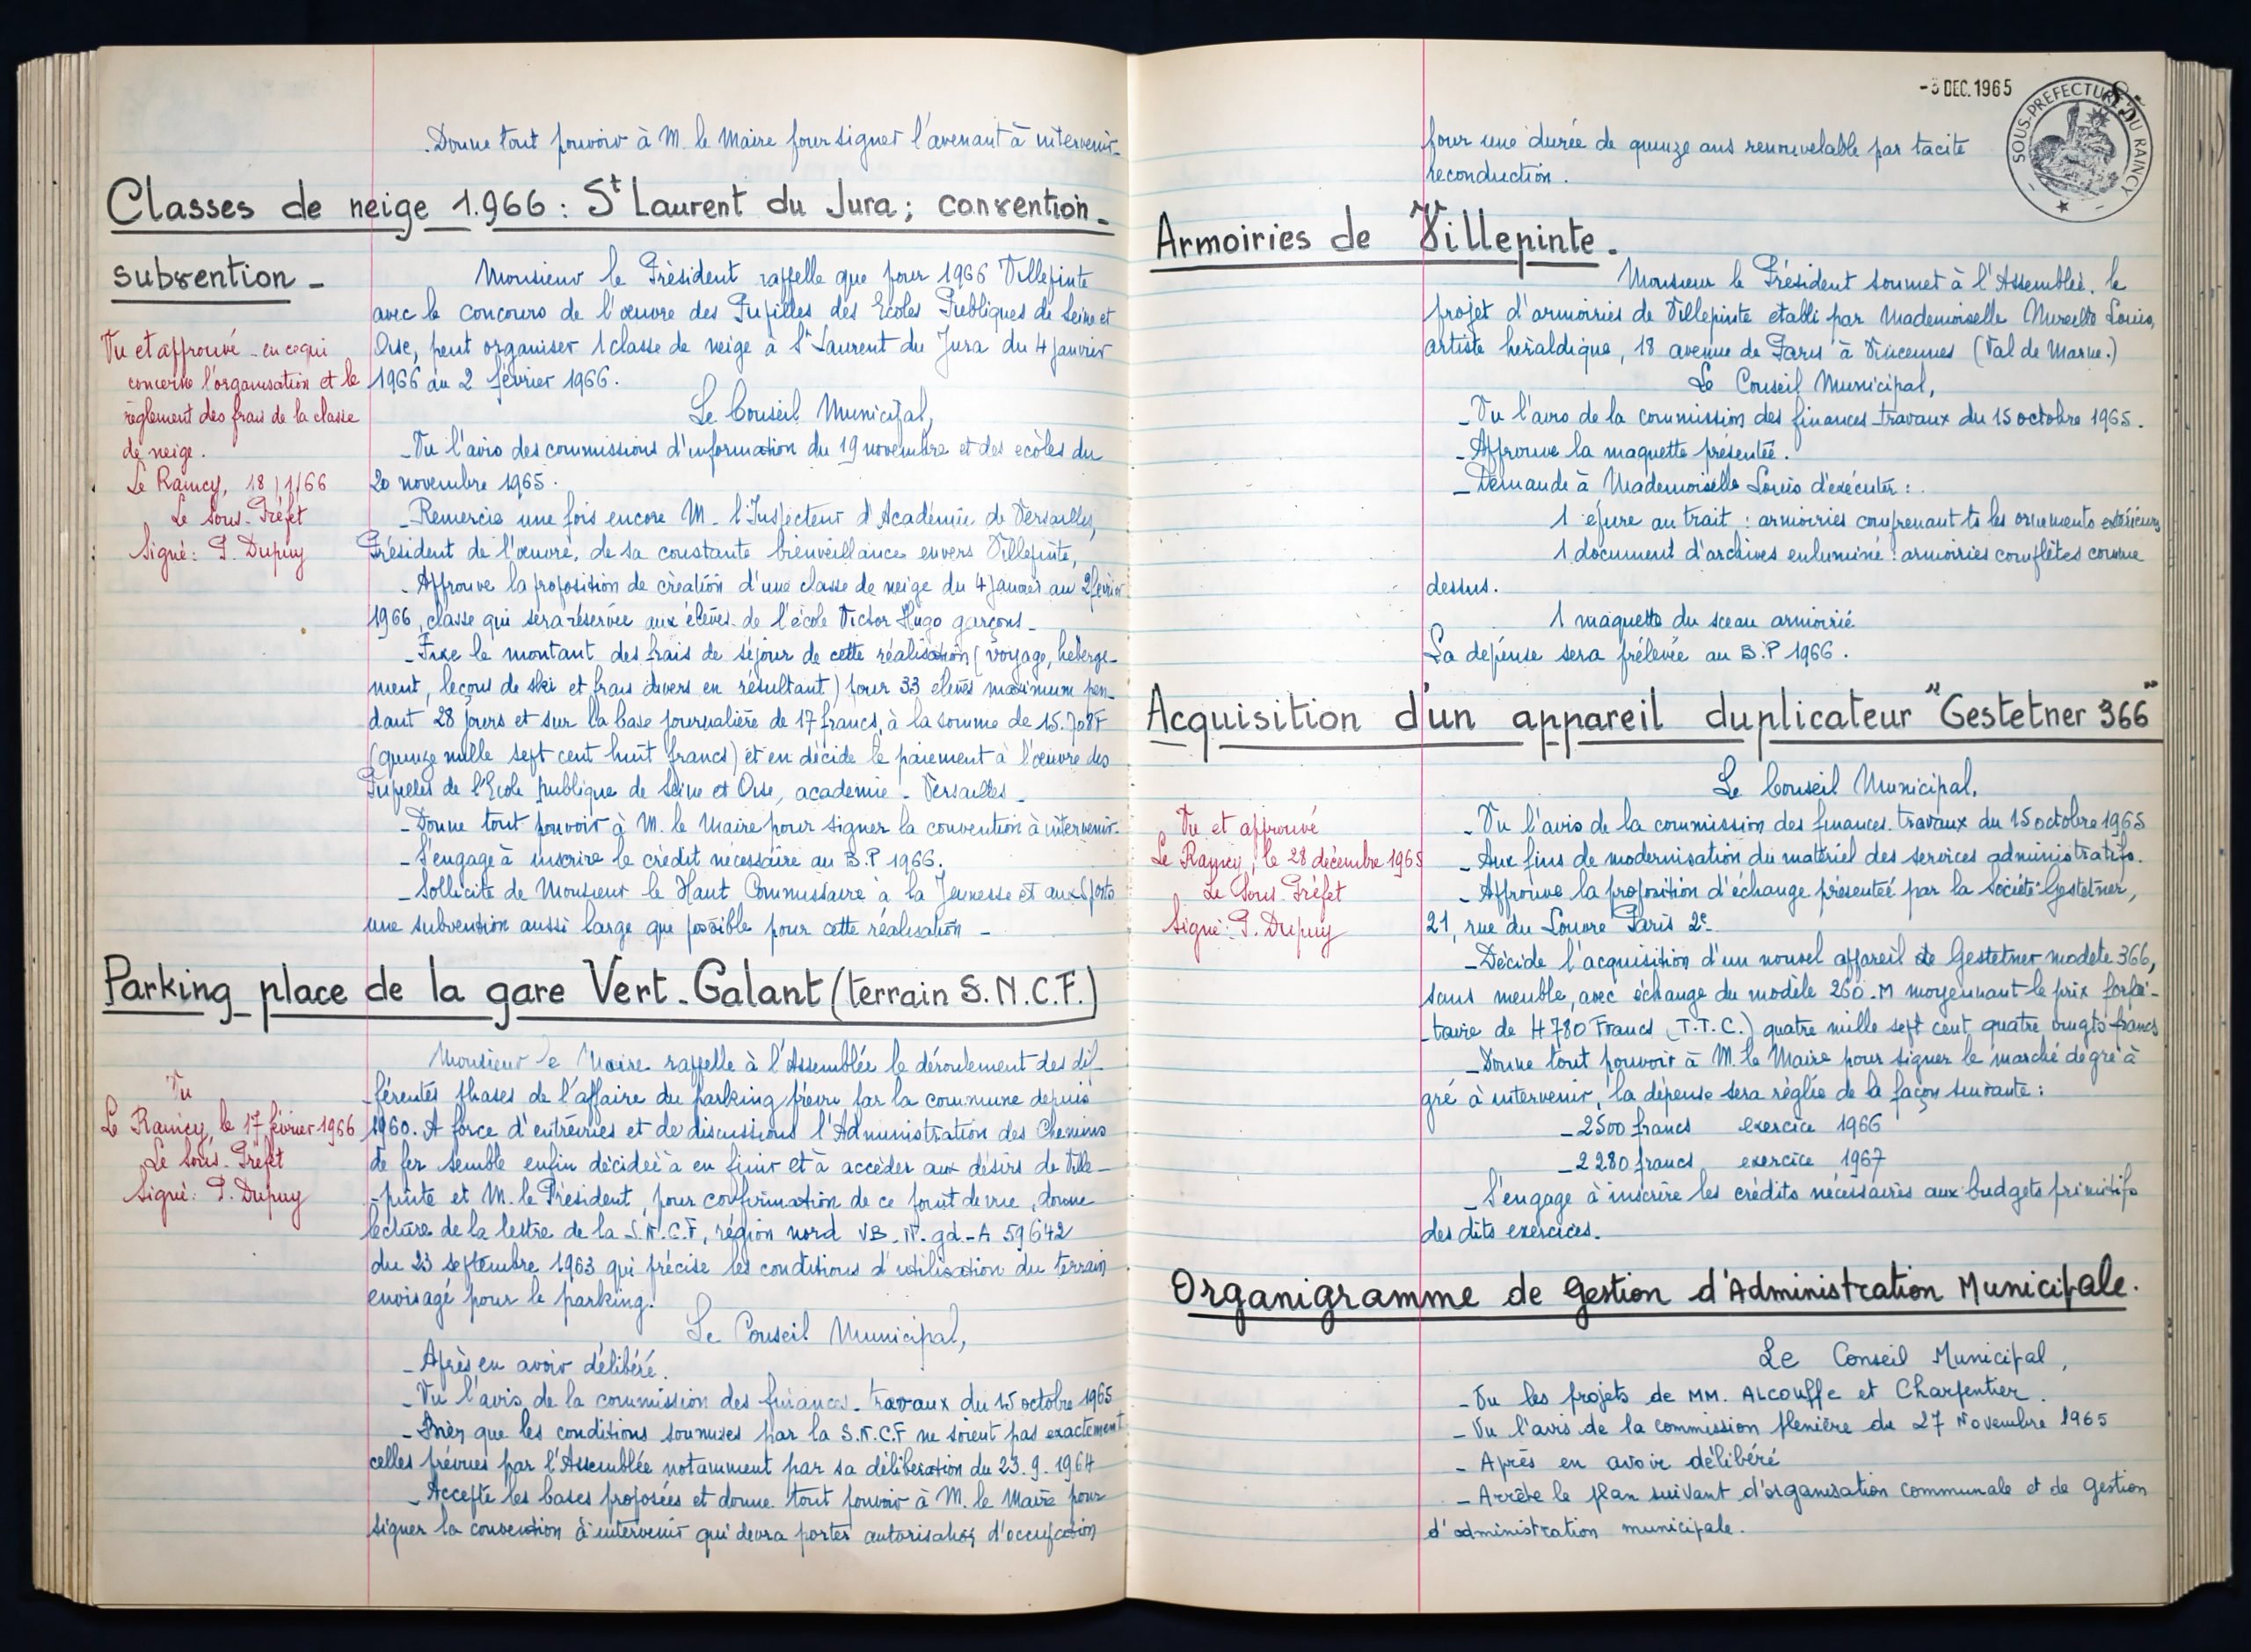 Donne tout pouvoir à M. le Maire pour signer l'avenant à intervenir.
Classes de neige 1.966 : St Laurent du Jura ; convention -
subvention -
Monsieur le Président rappelle que pour 1966 Villepinte
avec le concours de l'œuvre des Pupilles des Ecoles Publiques de Seine et
Oise, peut organiser 1 classe de neige à St Laurent du Jura du 4 janvier
1966 au 2 février 1966.
Le Conseil Municipal,
- Vu l'avis des commissions d'information du 19 novembre et des écoles du
20 novembre 1965.
- Remercie une fois encore M. l'Inspecteur d'Académie de Versailles,
Président de l'œuvre, de sa constante bienveillance envers Villepinte,
- Approuve la proposition de création d'une classe de neige du 4 janvier au 2 février
1966, classe qui sera réservée aux élèves de l'école Victor Hugo garçons -
- Fixe le montant des frais de séjour de cette réalisation (voyage, héberge-
ment, leçons de ski et frais divers en résultant) pour 33 élèves maximum pen-
dant 28 jours et sur la base journalière de 17 francs, à la somme de 15.708F
(quinze mille sept cent huit francs) et en décide le paiement à l'œuvre des
Pupilles de l'Ecole publique de Seine et Oise, académie - Versailles -
- Donne tout pouvoir à M. le Maire pour signer la convention à intervenir.
- S'engage à inscrire le crédit nécessaire au B.P 1966.
- Sollicite de Monsieur le Haut Commissaire à la Jeunesse et aux Sports
une subvention aussi large que possible pour cette réalisation -
Vu et approuvé - en ce qui
concerne l'organisation et le
règlement des frais de la classe
de neige.
Le Raincy, 18/1/66
Le Sous-Préfet
Signé : P. Dupuy
Parking place de la gare Vert-Galant (terrain S.N.C.F.)
Monsieur le Maire rappelle à l'Assemblée le déroulement des dif-
férentes phases de l'affaire du parking prévu par la commune depuis
1960. A force d'entrevues et de discussions l'Administration des Chemins
de fer semble enfin décidée à en finir et à accéder aux désirs de Ville-
-pinte et M. le Président, pour confirmation de ce point de vue, donne
lecture de la lettre de la S.N.C.F, région nord VB.N.gd.-A 59642
du 23 septembre 1963 qui précise les conditions d'utilisation du terrain
envisagé pour le parking.
Le Conseil Municipal,
- Après en avoir délibéré.
- Vu l'avis de la commission des finances - travaux du 15 octobre 1965
- Bien que les conditions soumises par la S.N.C.F ne soient pas exactement
celles prévues par l'Assemblée notamment par sa délibération du 23.9.1964
- Accepte les bases proposées et donne tout pouvoir à M. le Maire pour
signer la convention à intervenir qui devra porter autorisation d'occupation
Vu
Le Raincy, le 17 février 1966
Le Sous-Préfet
Signé : P. Dupuy
DEC. 1965
SOUS-PREFECTURE DU RAINCY
pour une durée de quinze ans renouvelable par tacite
reconduction.
Armoiries de Villepinte.
Monsieur le Président soumet à l'Assemblée, le
projet d'armoiries de Villepinte établi par Mademoiselle Mireille Louis,
artiste héraldique, 18 avenue de Paris à Vincennes (Val de Marne.)
Le Conseil Municipal,
- Vu l'avis de la commission des finances-travaux du 15 octobre 1965.
- Approuve la maquette présentée.
- Demande à Mademoiselle Louis d'exécuter :
1 épure au trait : armoiries comprenant ts les ornements extérieurs
1 document d'archives enluminé : armoiries complètes comme
dessus.
1 maquette du sceau armoirié
La dépense sera prélevée au B.P 1966.
Acquisition d'un appareil duplicateur "Gestetner 366"
Le Conseil Municipal,
- Vu l'avis de la commission des finances-travaux du 15 octobre 1965
- Aux fins de modernisation du matériel des services administratifs.
- Approuve la proposition d'échange présentée par la Société Gestetner,
21, rue du Louvre Paris 2e -
- Décide l'acquisition d'un nouvel appareil de Gestetner modèle 366,
sans meuble, avec échange du modèle 260.M moyennant le prix forfai-
-taire de 4780 Francs (T.T.C.) quatre mille sept cent quatre vingts francs
- Donne tout pouvoir à M. le Maire pour signer le marché de gré à
gré à intervenir, la dépense sera réglée de la façon suivante :
- 2500 francs exercice 1966
- 2280 francs exercice 1967
- S'engage à inscrire les crédits nécessaires aux budgets primitifs
des dits exercices.
Vu et approuvé
Le Raincy, le 28 décembre 1965
Le Sous-Préfet
Signé : P. Dupuy
Organigramme de Gestion d'Administration Municipale.
Le Conseil Municipal,
- Vu les projets de MM. ALCOUFFE et Charpentier.
- Vu l'avis de la commission plénière du 27 Novembre 1965
- Après en avoir délibéré
- Arrête le plan suivant d'organisation communale et de gestion
d'administration municipale.